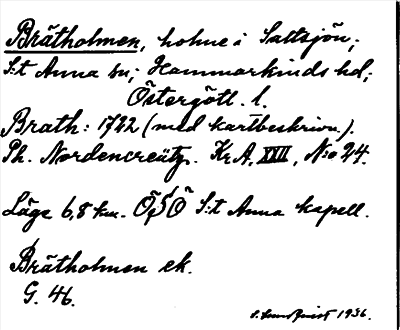 Brätholmen, holme i Saltsjön;
S:t Anna sn; Hammarkinds hd;
Östergötl. l.
Brath: 1722 (med kartbeskrivn.).
Ph. Nordencreütz. Kr.A. XXII, N:o 24.
Läge 6,8 km. ÖSÖ S:t Anna kapell.
Brätholmen ek.
G. 46.
1936.